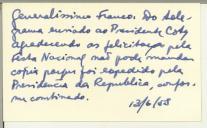 Generalissimo Franco. Do tele-
grama enviado ao Presidente Coty
agradecendo as felicitações pela
Festa Nacional não pode mandar
copia porque foi expedido pela
Presidencia da Republica, confor-
me combinado.
13/6/58